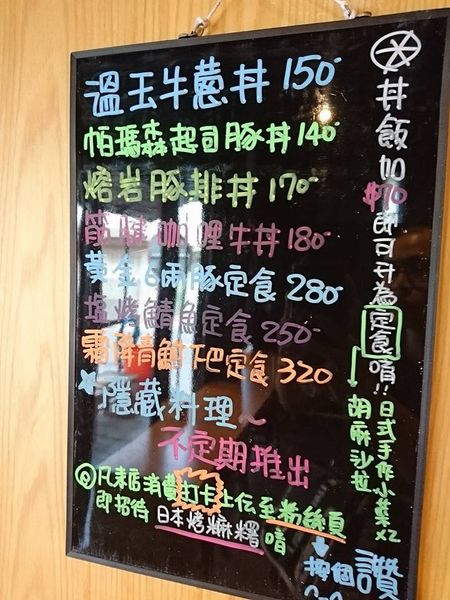 溫玉牛蔥丼 150
帕瑪森起司豚丼 140
熔岩豚排丼 170
筋腱咖哩牛丼 180
黃金6兩豚定食 280
塩烤鯖魚定食 250
霜降青魽下巴定食 320
隱藏料理~
不定期推出
凡來店消費打卡上伝至粉絲頁
即招待日本烤麻糬唷
按個讚
丼飯加$70即可升為定食唷!!
日式手作小菜x2
胡麻沙拉